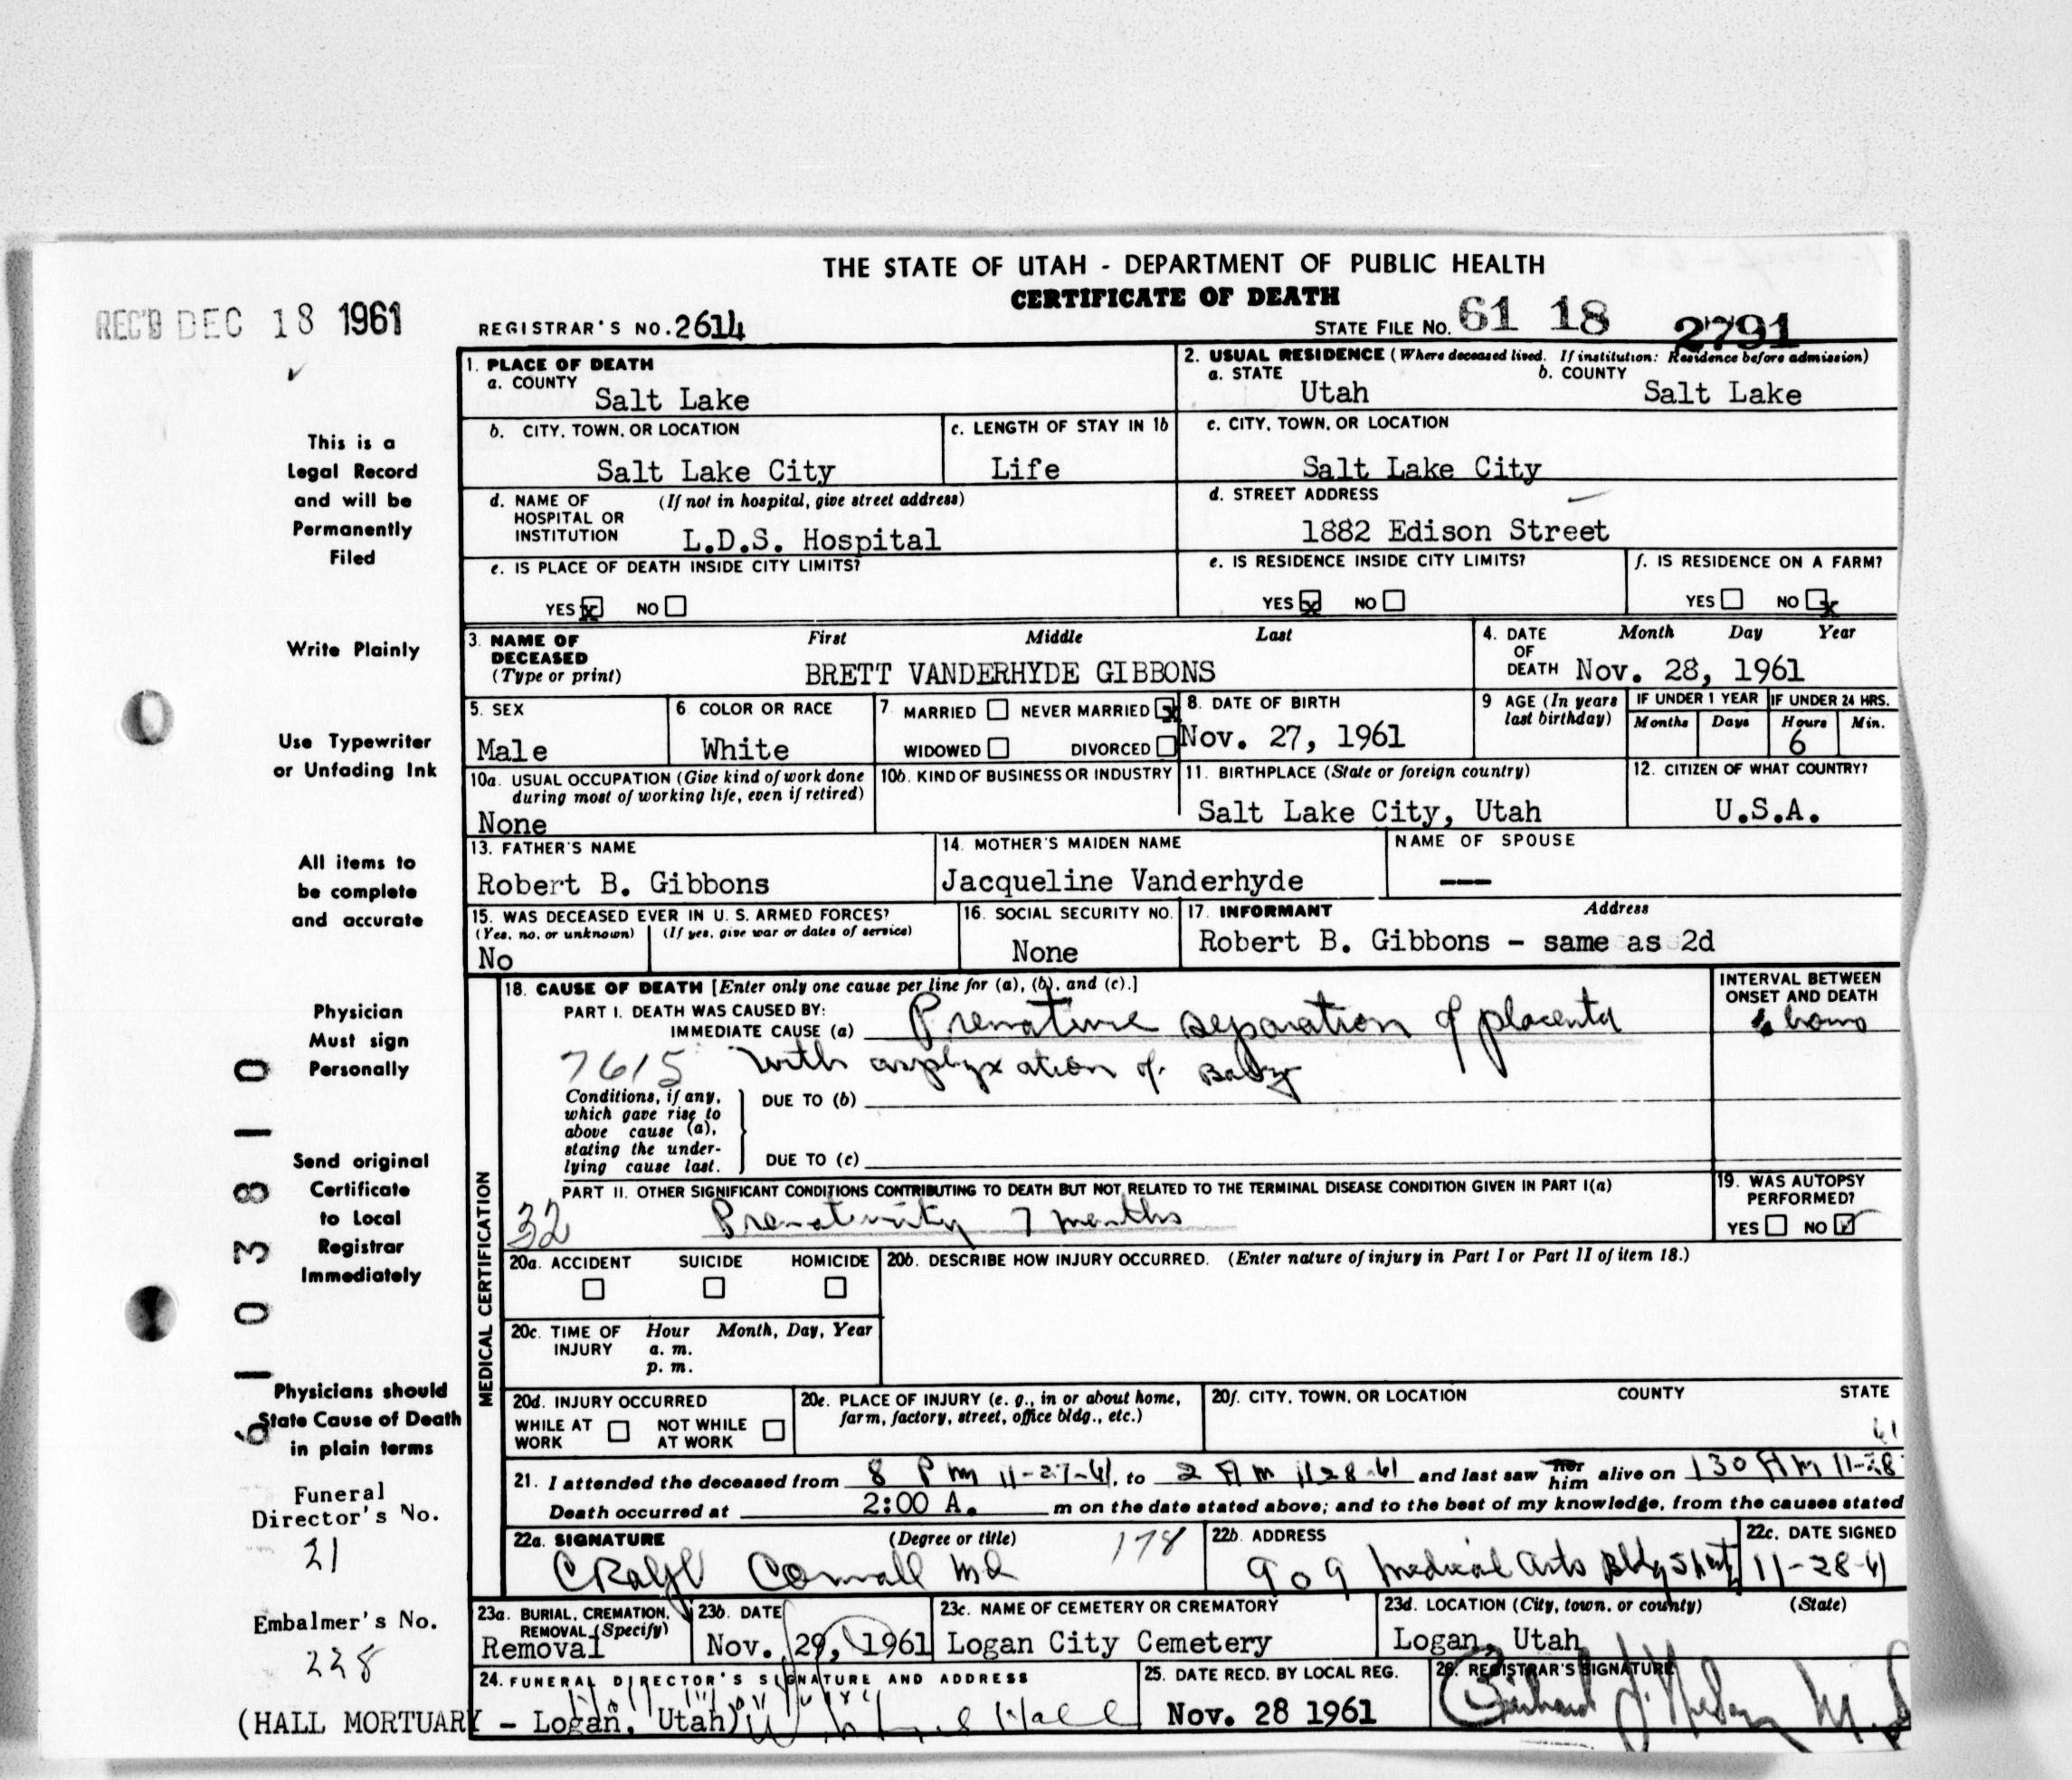 THE STATE OF UTAH - DEPARTMENT OF PUBLIC HEALTH
CERTIFICATE OF DEATH
REC'D DEC 18 1961
REGISTRAR'S NO. 2614
STATE FILE NO. 61 18 2791
1. PLACE OF DEATH
a. COUNTY
Salt Lake
2. USUAL RESIDENCE (Where deceased lived. If institution: Residence before admission)
a. STATE
Utah
b. COUNTY
Salt Lake
b. CITY, TOWN, OR LOCATION
Salt Lake City
c. LENGTH OF STAY IN 1b
Life
c. CITY, TOWN, OR LOCATION
Salt Lake City
d. NAME OF HOSPITAL OR INSTITUTION
(If not in hospital, give street address)
L.D.S. Hospital
d. STREET ADDRESS
1882 Edison Street
e. IS PLACE OF DEATH INSIDE CITY LIMITS?
YES x NO
e. IS RESIDENCE INSIDE CITY LIMITS?
YES x NO
f. IS RESIDENCE ON A FARM?
YES NO x
3. NAME OF DECEASED (Type or print)
First Middle Last
BRETT VANDERHYDE GIBBONS
4. DATE OF DEATH
Month Day Year
Nov. 28, 1961
5. SEX
Male
6. COLOR OR RACE
White
7. MARRIED NEVER MARRIED x
WIDOWED DIVORCED
8. DATE OF BIRTH
Nov. 27, 1961
9 AGE (In years last birthday)
IF UNDER 1 YEAR
Months Days
IF UNDER 24 HRS.
Hours Min.
6
10a. USUAL OCCUPATION (Give kind of work done during most of working life, even if retired)
None
10b. KIND OF BUSINESS OR INDUSTRY
11. BIRTHPLACE (State or foreign country)
Salt Lake City, Utah
12. CITIZEN OF WHAT COUNTRY?
U.S.A.
13. FATHER'S NAME
Robert B. Gibbons
14. MOTHER'S MAIDEN NAME
Jacqueline Vanderhyde
NAME OF SPOUSE
---
15. WAS DECEASED EVER IN U. S. ARMED FORCES?
(Yes, no, or unknown) (If yes, give war or dates of service)
No
16. SOCIAL SECURITY NO.
None
17. INFORMANT Address
Robert B. Gibbons - same as 2d
MEDICAL CERTIFICATION
18. CAUSE OF DEATH [Enter only one cause per line for (a), (b), and (c).]
INTERVAL BETWEEN ONSET AND DEATH
PART I. DEATH WAS CAUSED BY:
IMMEDIATE CAUSE (a) Premature separation of placenta
hours
7615 with asphyxation of Baby
Conditions, if any, which gave rise to above cause (a), stating the underlying cause last.
DUE TO (b)
DUE TO (c)
PART II. OTHER SIGNIFICANT CONDITIONS CONTRIBUTING TO DEATH BUT NOT RELATED TO THE TERMINAL DISEASE CONDITION GIVEN IN PART I(a)
32 Prematurity 7 months
19. WAS AUTOPSY PERFORMED?
YES NO ✓
20a. ACCIDENT SUICIDE HOMICIDE
20b. DESCRIBE HOW INJURY OCCURRED. (Enter nature of injury in Part I or Part II of item 18.)
20c. TIME OF INJURY
Hour Month, Day, Year
a. m.
p. m.
20d. INJURY OCCURRED
WHILE AT WORK NOT WHILE AT WORK
20e. PLACE OF INJURY (e. g., in or about home, farm, factory, street, office bldg., etc.)
20f. CITY, TOWN, OR LOCATION COUNTY STATE
61
21. I attended the deceased from 8 Pm 11-27-61, to 2 AM 11 28-61 and last saw her him alive on 130 AM 11-28
Death occurred at 2:00 A. m on the date stated above; and to the best of my knowledge, from the causes stated
22a. SIGNATURE (Degree or title)
178
22b. ADDRESS
909 Medical Arts Bldg
22c. DATE SIGNED
11-28-61
23a. BURIAL, CREMATION, REMOVAL (Specify)
Removal
23b. DATE
Nov. 29, 1961
23c. NAME OF CEMETERY OR CREMATORY
Logan City Cemetery
23d. LOCATION (City, town, or county) (State)
Logan, Utah
24. FUNERAL DIRECTOR'S SIGNATURE AND ADDRESS
(HALL MORTUARY - Logan, Utah) Hall
25. DATE RECD. BY LOCAL REG.
Nov. 28 1961
26. REGISTRAR'S SIGNATURE
This is a
Legal Record
and will be
Permanently
Filed
Write Plainly
Use Typewriter
or Unfading Ink
All items to
be complete
and accurate
Physician
Must sign
Personally
Send original
Certificate
to Local
Registrar
Immediately
Physicians should
State Cause of Death
in plain terms
61 03810
Funeral
Director's No.
21
Embalmer's No.
228